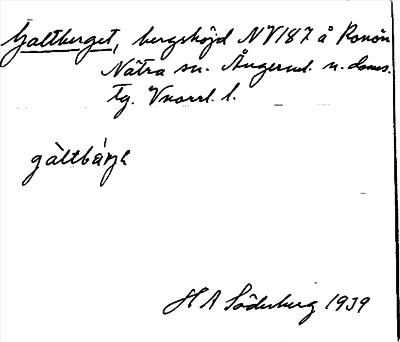 Galtberget, bergshöjd NV187 å Ronön
Nätra sn. Ångerml. n. doms.
tg. Vnorrl. l.
gàltbárjɛ
H A Söderberg 1939